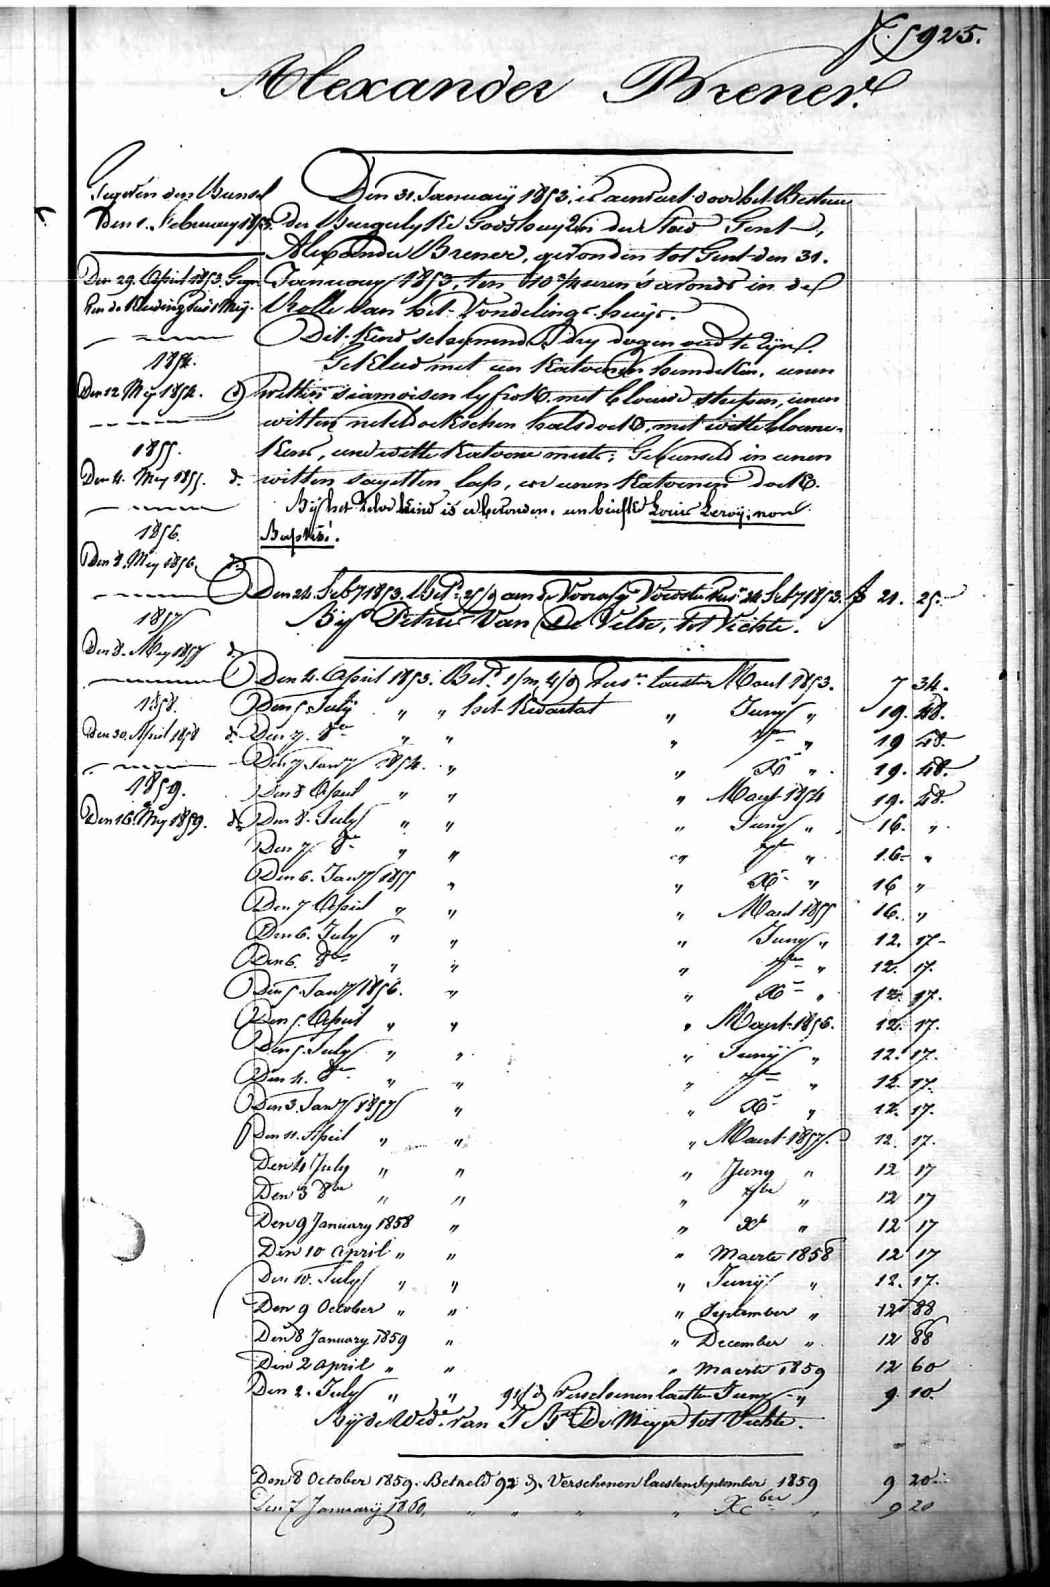 f. 5925.
Alexander Brener.
Gegeven den Bunsel
Den 1. February 1853.
Den 29. April 1853. Gege-
ven de Kleeding
1854.
Den 12 Mey 1854. d°
1855.
Den 4. Mey 1855. d°
1856.
Den 8. Mey 1856. d°
1857
Den 8. Mey 1857 d°
1858.
Den 30. April 1858 d°
1859.
Den 16. Mey 1859. d°
Den 31. January 1853. is aenveert door het Bestuur
der Burgerlyke Godshuyzen der Stad Gent,
Alexander Brener, gevonden tot Gent den 31.
January 1853, ten 10 3/4 uren s'avonds in de
Rolle van het Vondelings-huys.
Dit Kind schynende dry dagen oud te zyn.
Gekleed met een Katoenen hemdeken, eenen
witten siamoisen lyfrok met blauwe streepen, eenen
witten neteldoekschen halsdoek, met witte bloeme-
kens, eene witte Katoene muts; Gebunseld in eenen
witten sayetten lap, en eenen Katoenen doek.
By het zelve kind is er bevonden, een briefke Louis Leroÿ; non
Baptisé.
Den 24. Feb'y 1853. Bet'd 25/9 aen de Voorsz Voedster 24 Feb'y 1853. f 21. 25.
By Petrus Van De Velde, tot Vichte.
Den 4. April 1853. Bet'd 1/m 4/9 laesten Maert 1853. 7 34.
Den 5 July " " het Kwartael " Juny " 19. 48.
Den 7. 8re " " " 7bre " 19 48.
Den 7 Jan'y 1854. " " Xr " 19. 48.
Den 8 April " " " Maert 1854 19. 48.
Den 8. July " " " Juny " 16. "
Den 7. 8re " " " 7bre " 16 "
Den 6. Jan'y 1855 " " Xr " 16 "
Den 7 April " " " Maert 1855 16. "
Den 6. July " " " Juny " 12. 17
Den 6. 8re " " " 7bre " 12. 17.
Den 5 Jan'y 1856. " " Xr " 12. 17.
Den 5. April " " " Maert 1856. 12. 17.
Den 5. July " " " Juny " 12. 17.
Den 4. 8re " " " 7bre " 12. 17.
Den 3. Jan'y 1857 " " Xr " 12. 17.
Den 11. April " " " Maert 1857. 12. 17.
Den 4 July " " " Juny " 12 17
Den 3 8bre " " " 7bre " 12 17
Den 9 January 1858 " " Xb " 12 17
Den 10 april " " " Maerte 1858 12 17
Den 10. July " " " Juny " 12. 17.
Den 9 October " " " September " 12 88
Den 8 January 1859 " " December " 12 88
Den 2 april " " " maerte 1859 12 60
Den 2. July " " 91/d Verschenen laesten Juny " 9. 10.
By de Wed'e van J. Bte De Meyer tot Vichte.
Den 8 October 1859. Betaeld 92 d. Verschenen laesten September 1859 9 20
Den 7 January 1860, " " " " Xber " 9 20